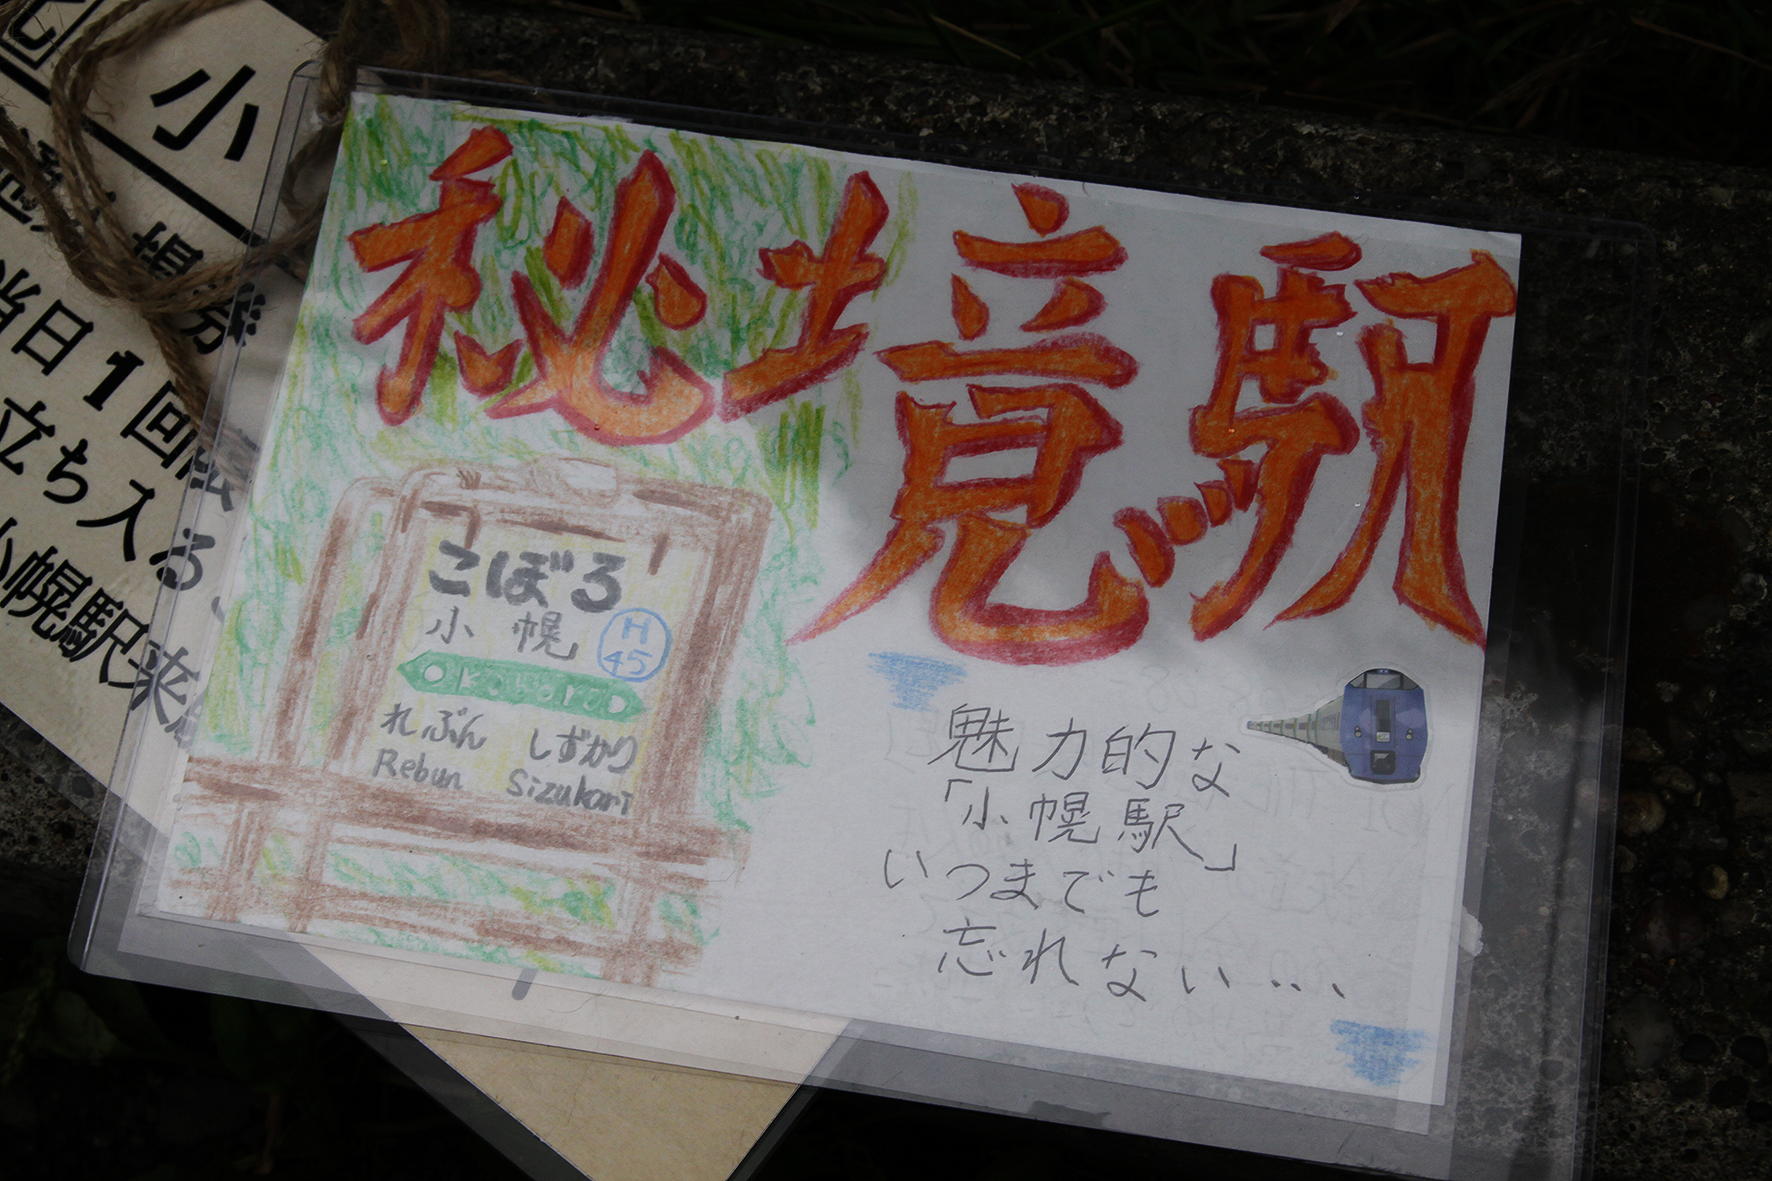 秘境駅
こぼろ
小幌
H
45
Okoboro
れぶん しずかり
Rebun Sizukari
魅力的な
「小幌駅」
いつまでも
忘れない...
小
当日1回
立ち入る
小幌駅来